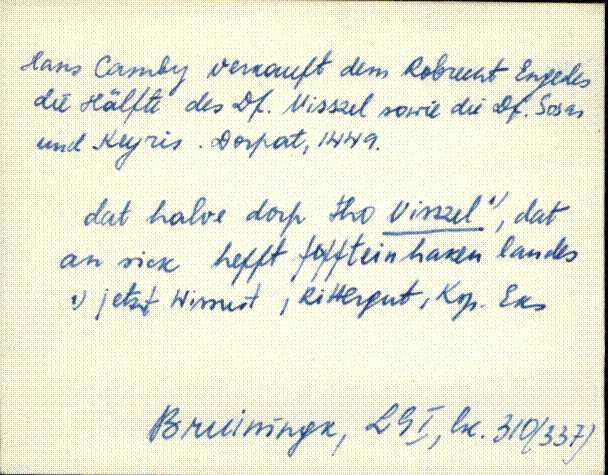 Hans Camby verkauft dem Robrecht Engedes
die Hälfte des Df. Visszel sowie die Df. Sosar
und Keyris. Dorpat, 1449.
dat halve dorp tho Visszel ¹), dat
an sick hefft foffteinhaken landes
¹) jetzt Wissust, Rittergut, Ksp. Eks
Bruiningk, LGI, lk. 310 (337)